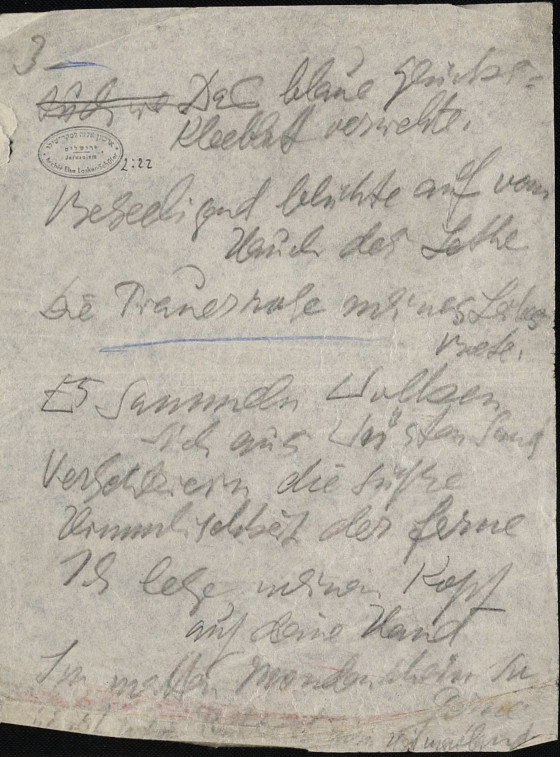 3
Das blaue Glücks-
kleeblat verwehte.
Jerusalem
2:22
Beseeligend blühte auf vom
Hauch der Lethe
Die Trauerrose meines
Es sammeln Wolken
sich aus Wüstensand
Verschleiern die süße
Himmlischkeit der ferne
Ich lege meinen Kopf
auf deine Hand
Im matten Mondenschein